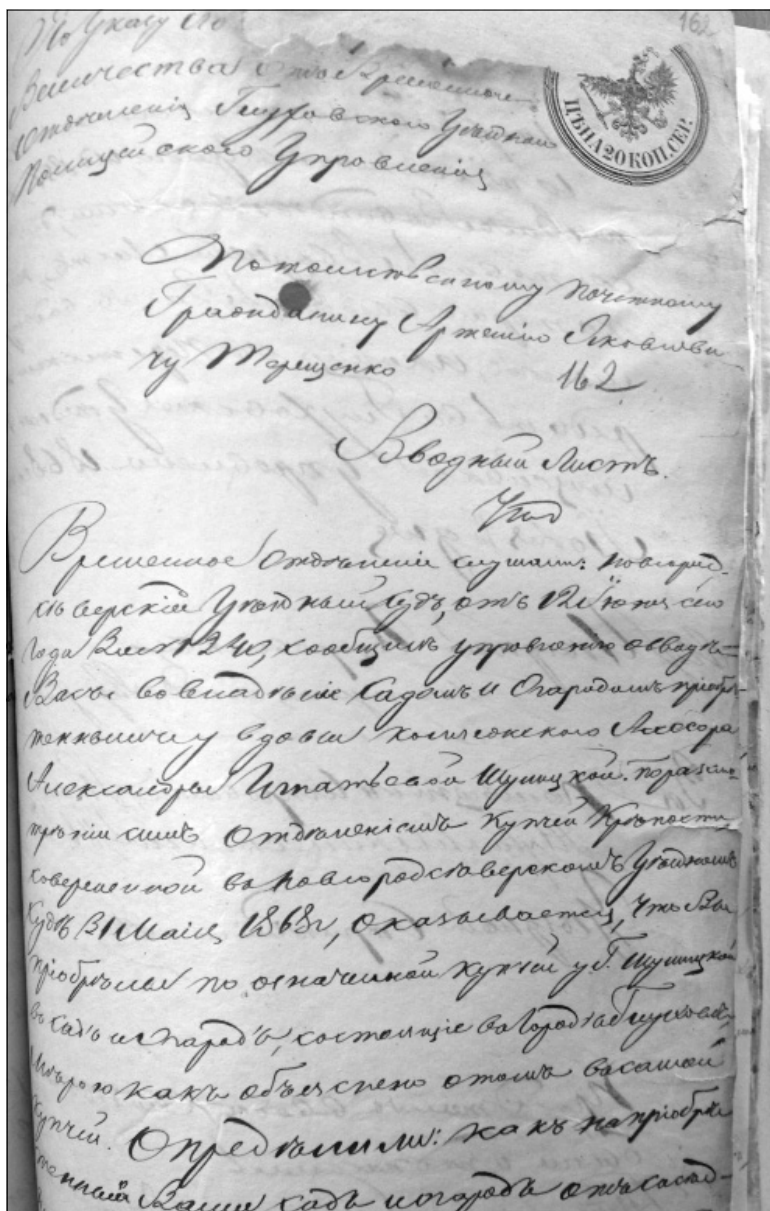 162
По Указу
Величества отъ Временнаго
Отдѣленія Глуховского Уѣзднаго
Полицейского Управленія
ЦѢНА 20 КОП. СЕР.
Потомственному почетному
Гражданину Артемію Яковлеви-
чу Терещенко
162
Вводный Листъ.
Временное Отдѣленіе слушали: Новгород-
сѣверскій Уѣздный Судъ, отъ 12 Іюня сего
года за № 1240, сообщилъ управленію о вводѣ
Васъ во владѣніе Садомъ и Огородомъ приобрѣ-
теннымъ у вдовы Коллежского Ассесора
Александры Игнатьевой Шулицкой. По разсмо-
трѣніи симъ Отдѣленіемъ Купчей Крѣпости,
совершенной въ Новгородсѣверскомъ Уѣздномъ
Судѣ 31 Маія 1868 г, оказывается, что Вы
пріобрѣли по означенной купчей у Г. Шулицкой
садъ и огородъ, состоящіе въ Городѣ Глуховѣ,
мѣрою какъ объяснено о томъ въ самой
купчей. Опредѣлили: какъ на приобрѣ-
тенный Вами садъ и огородъ